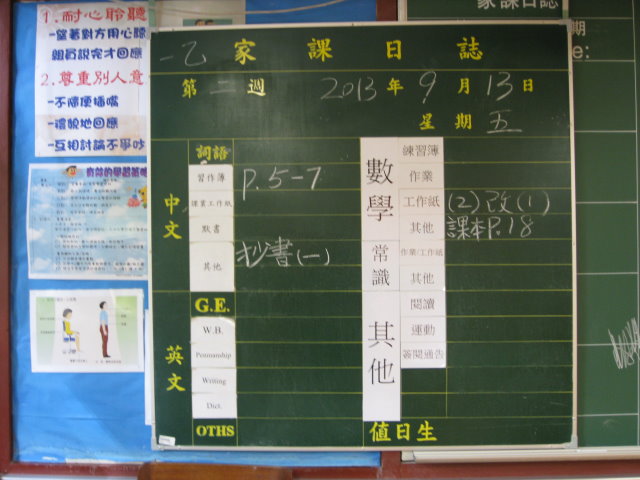 1.耐心聆聽
-望著對方用心聽
組員說完才回應
2.尊重別人意
-不隨便插嘴
-禮貌地回應
-互相討論不爭吵
有效的學習策略
家課日誌
期
e:
一乙 家課日誌
第二週 2013年9月13日
星期五
中文
詞語
習作簿 P.5-7
課業工作紙
默書
其他 抄書(一)
英文
G.E.
W.B.
Penmanship
Writing
Dict.
OTHS
數學
練習簿
作業
工作紙 (2)改(1)
其他 課本P.18
常識
作業/工作紙
其他
其他
閱讀
運動
簽閱通告
值日生